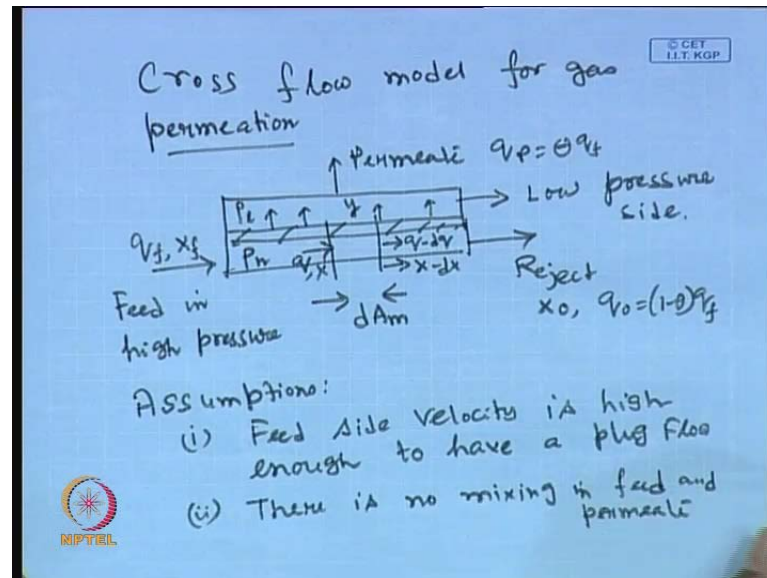 © CET
I.I.T. KGP
Cross flow model for gas
permeation
Permeate qp = θqf
Pl y → Low pressure
side.
qf, xf
Ph q, x → q-dq
→ x-dx
Reject
x0, q0=(1-θ)qf
Feed in
high pressure
→ ←
dAm
Assumptions:
(i) Feed side velocity is high
enough to have a plug flow
(ii) There is no mixing in feed and
permeate
NPTEL